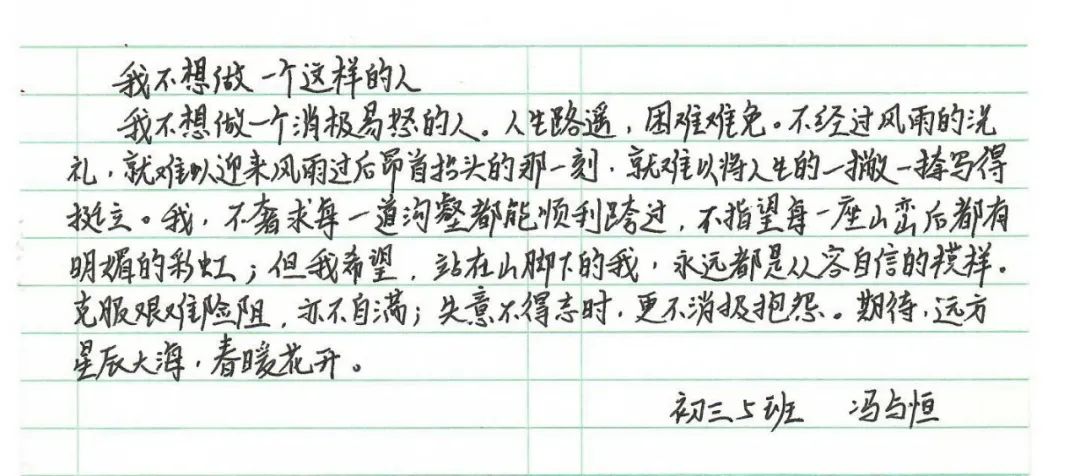 我不想做一个这样的人
我不想做一个消极易怒的人。人生路遥，困难难免。不经过风雨的洗
礼，就难以迎来风雨过后昂首抬头的那一刻，就难以将人生的一撇一捺写得
挺立。我，不奢求每一道沟壑都能顺利跨过，不指望每一座山峦后都有
明媚的彩虹；但我希望，站在山脚下的我，永远都是从容自信的模样。
克服艰难险阻，亦不自满；失意不得志时，更不消极抱怨。期待，远方
星辰大海，春暖花开。
初三5班 冯与恒